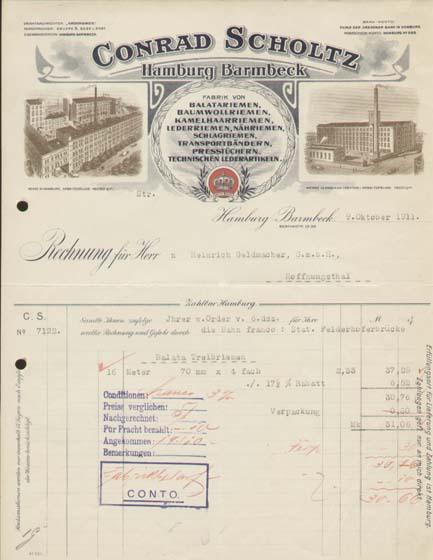 CONRAD SCHOLTZ
Hamburg Barmbeck
FABRIK VON
BALATARIEMEN,
BAUMWOLLRIEMEN,
KAMELHAARRIEMEN,
LEDERRIEMEN, NÄHRIEMEN,
SCHLAGRIEMEN,
TRANSPORTBÄNDERN,
PRESSTÜCHERN,
TECHNISCHEN LEDERARTIKELN.
Str.
Hamburg-Barmbeck, 9.Oktober 1911.
Rechnung für Herr n Heinrich Geldmacher, G.m.b.H.,
Hoffnungsthal
Zahlbar Hamburg
C. S.
No 7122.
Sandte Ihnen zufolge Jhrer w.Order v. 6.ds. für Ihre
werte Rechnung und Gefahr durch die Bahn franco: Stat. Felderhoferbrücke
Balata Treibriemen
16 Meter 70 mm x 4 fach 2,33 37,28
./. 17½ % Rabatt 6,52
30,76
Verpackung 0,30
Mk 31,06
Conditionen: franco 3%
Preise verglichen:
Nachgerechnet:
Für Fracht bezahlt:
Angekommen:
Bemerkungen:
CONTO.
30.60
Erfüllungsort für Lieferung und Zahlung ist Hamburg.
Zahlungen gelt. nur an mich direkt.